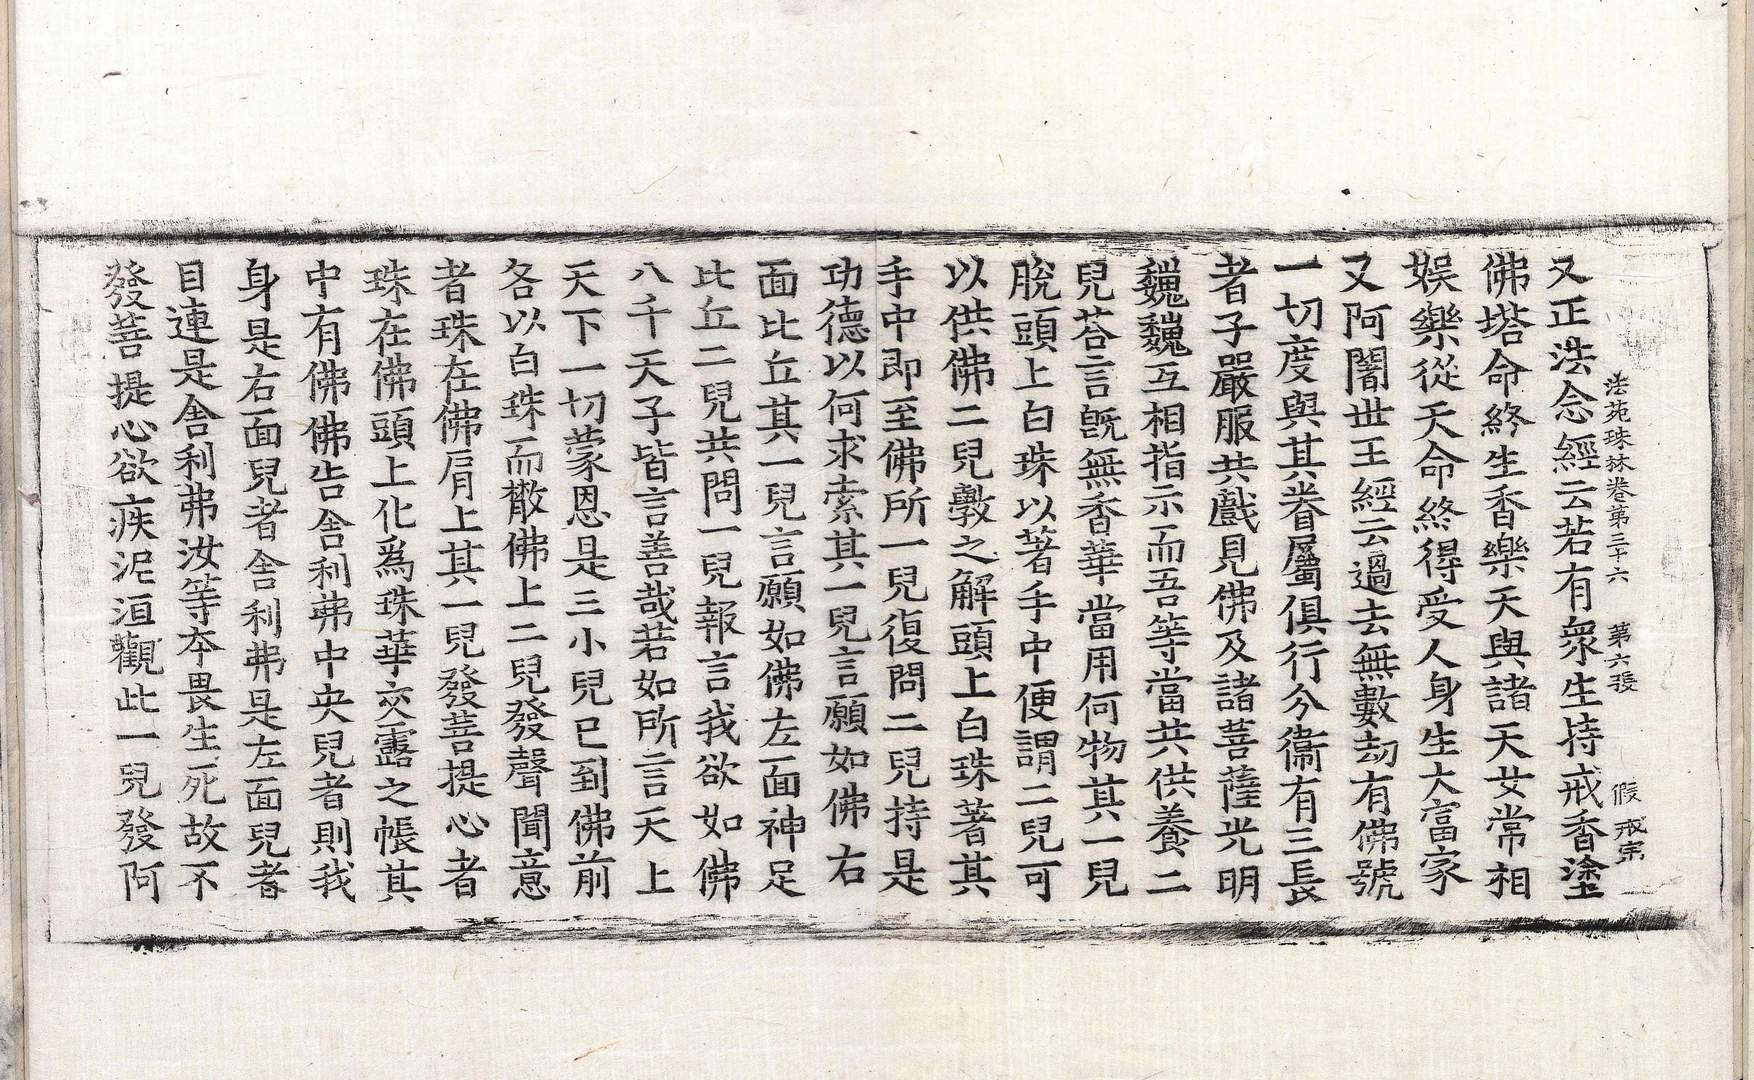 法苑珠林卷第三十六 第六張 假 戒宗
又正法念經云若有衆生持戒香塗
佛塔命終生香樂天與諸天女常相
娛樂從天命終得受人身生大富家
又阿闍世王經云過去無數劫有佛號
一切度與其眷屬俱行分衞有三長
者子嚴服共戲見佛及諸菩薩光明
巍巍互相指示而吾等當共供養二
兒荅言旣無香華當用何物其一兒
脫頭上白珠以著手中便謂二兒可
以供佛二兒斅之解頭上白珠著其
手中即至佛所一兒復問二兒持是
功德以何求索其一兒言願如佛右
面比丘其一兒言願如佛左面神足
比丘二兒共問一兒報言我欲如佛
八千天子皆言善哉若如所言天上
天下一切蒙恩是三小兒已到佛前
各以白珠而散佛上二兒發聲聞意
者珠在佛肩上其一兒發菩提心者
珠在佛頭上化爲珠華交露之帳其
中有佛佛告舍利弗中央兒者則我
身是右面兒者舍利弗是左面兒者
目連是舍利弗汝等本畏生死故不
發菩提心欲疾泥洹觀此一兒發阿